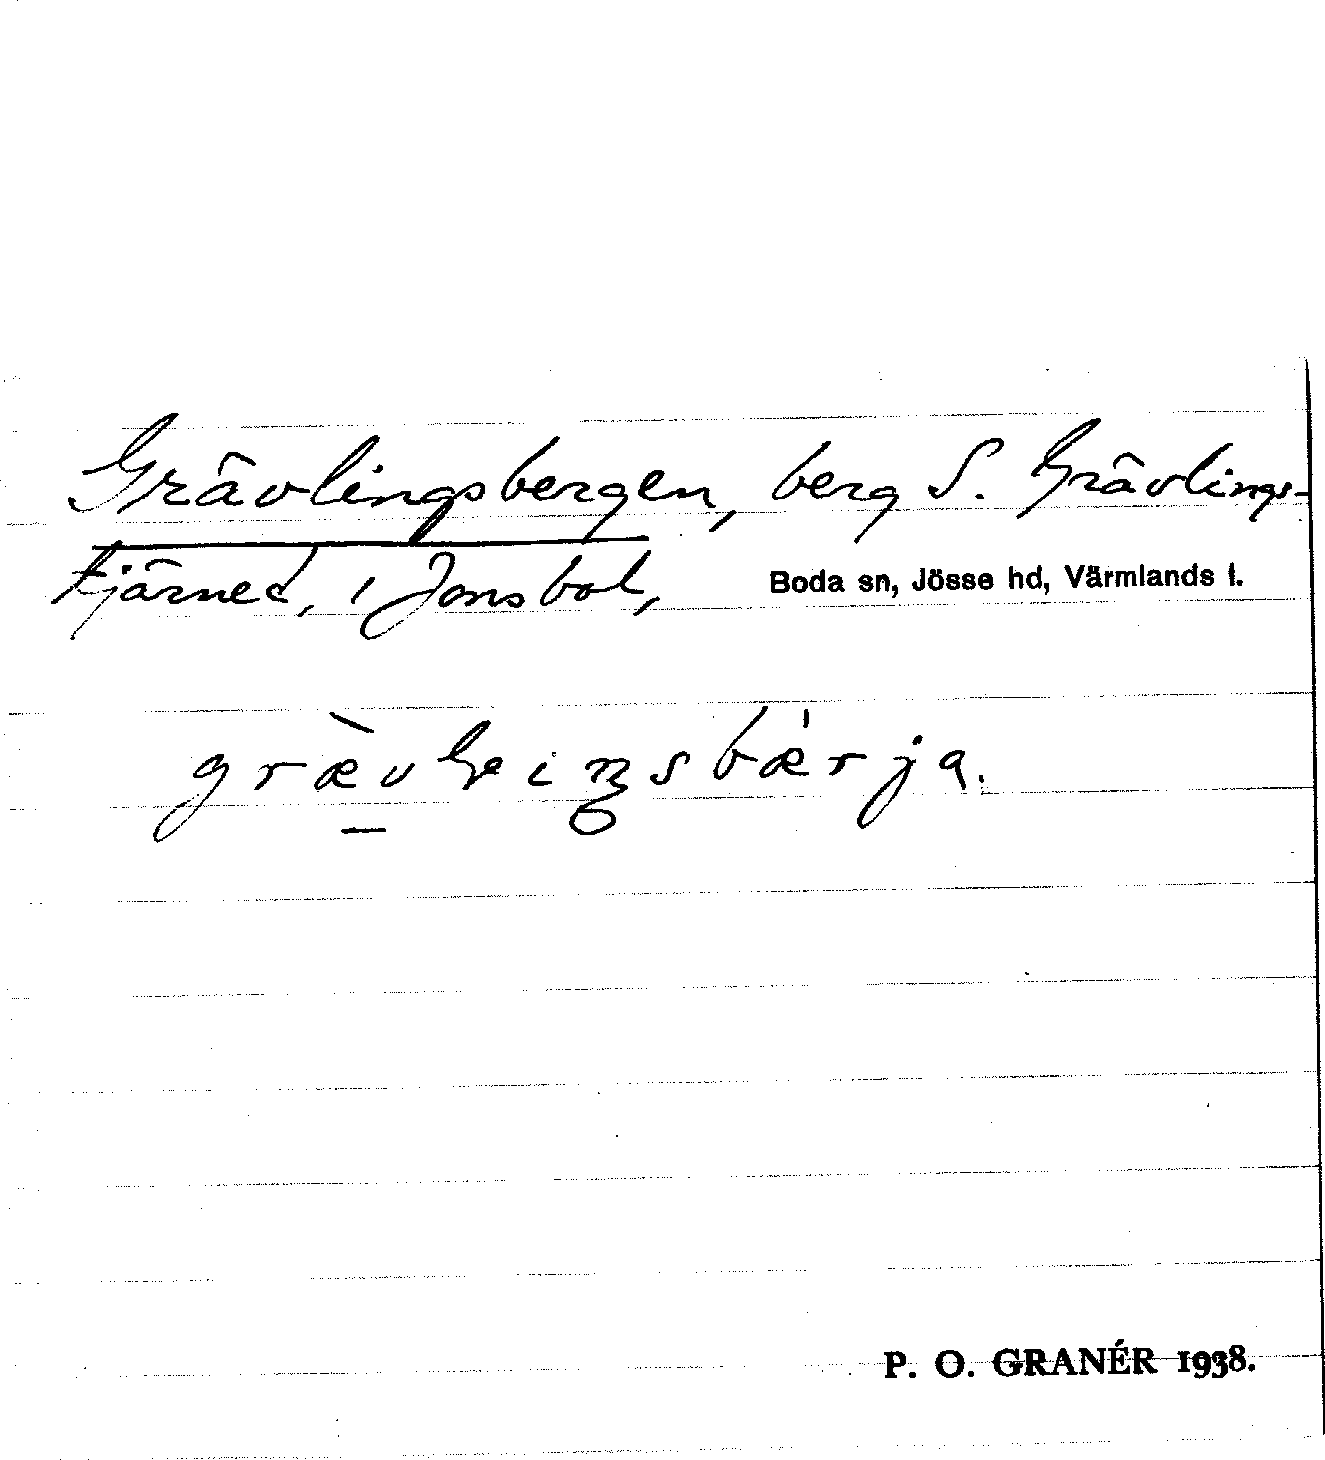 Grävlingsbergen, berg S. Grävlings-
tjärned, i Jonsbol, Boda sn, Jösse hd, Värmlands l.
P. O. GRANÉR 1938.